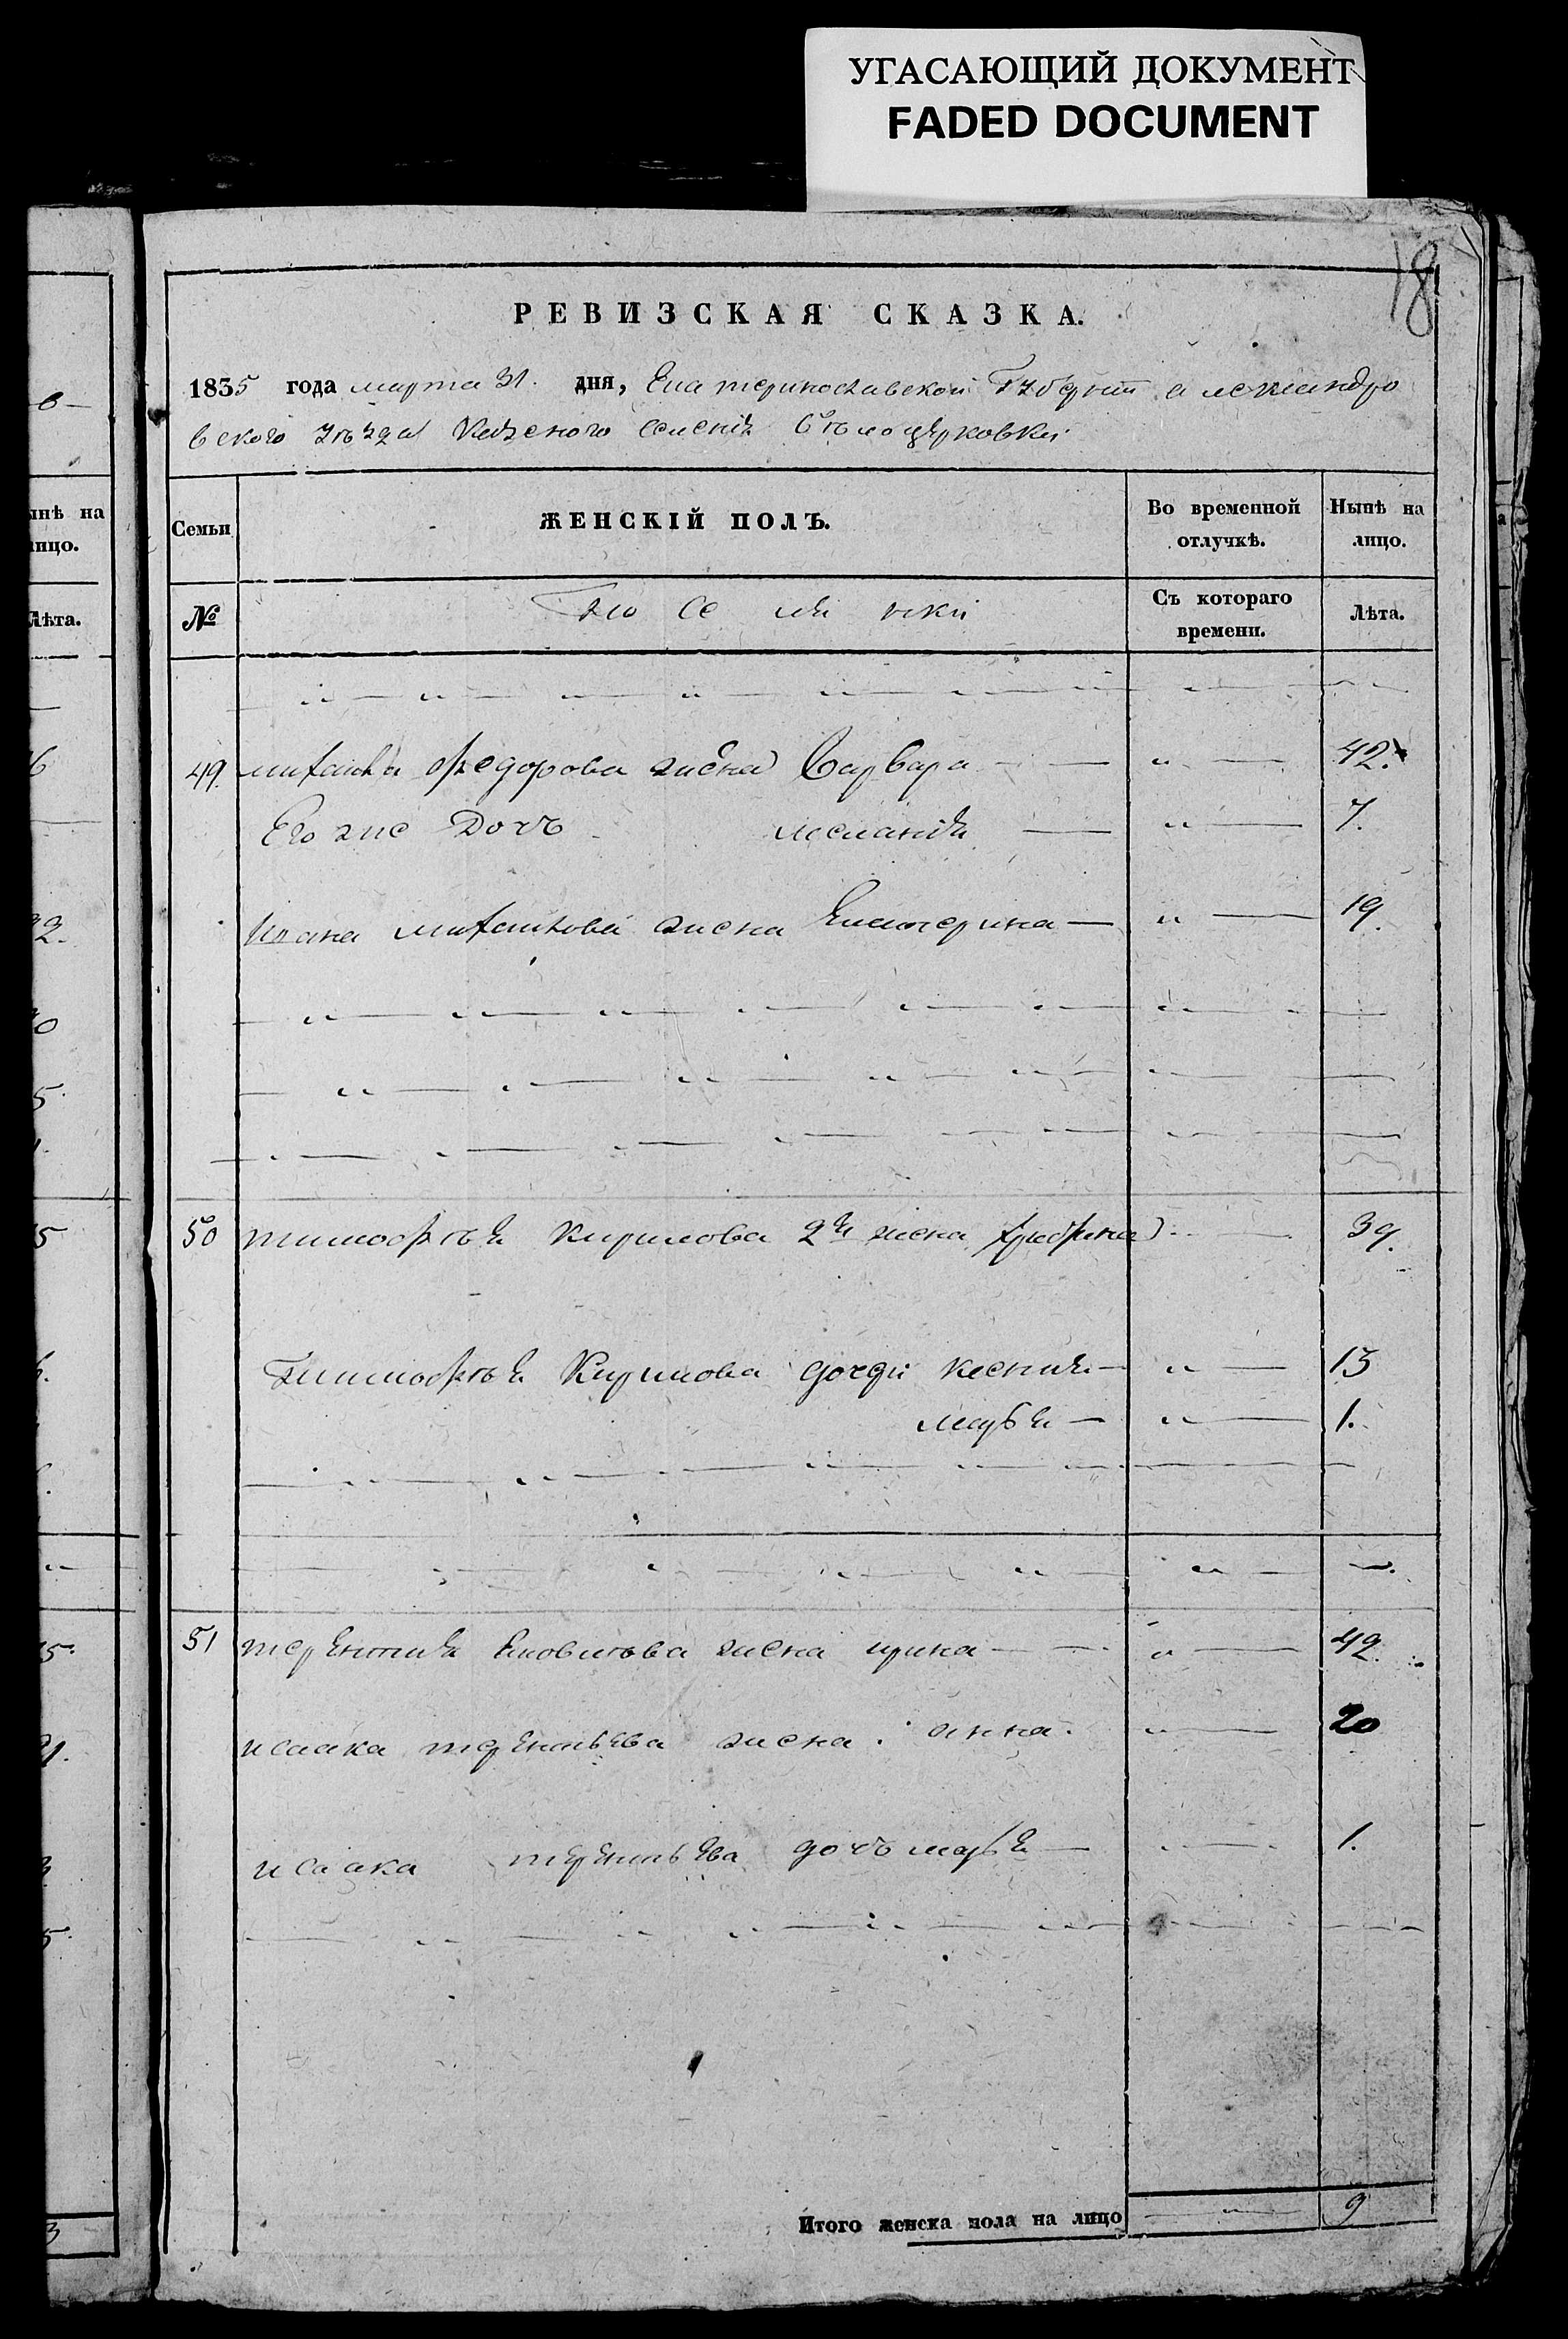 УГАСАЮЩИЙ ДОКУМЕНТ
FADED DOCUMENT
18
РЕВИЗСКАЯ СКАЗКА.
1835 года марта 31. дня, Екатеринославской Губернии александро
вского уѣзда Казеного селенія бѣлоцерковки
Семьи
ЖЕНСКІЙ ПОЛЪ.
Во временной отлучкѣ.
Нынѣ на лицо.
№
Поселянки
Съ котораго времени.
Лѣта.
49. михаила федорова жена Варвара 42.
Его же Дочь меланія 7.
Ивана михаилова жена Екатерина 19.
50 тимофѣя кирилова 2я жена 39.
Тимофѣя Кирилова дочери ксения 13
марья 1.
51 терентия яковлева жена ирина 42.
исаака терентьева жена анна. 20
исаака терентьева дочь марья 1.
Итого женска пола на лицо 9
ынѣ на
лицо.
Лѣта.